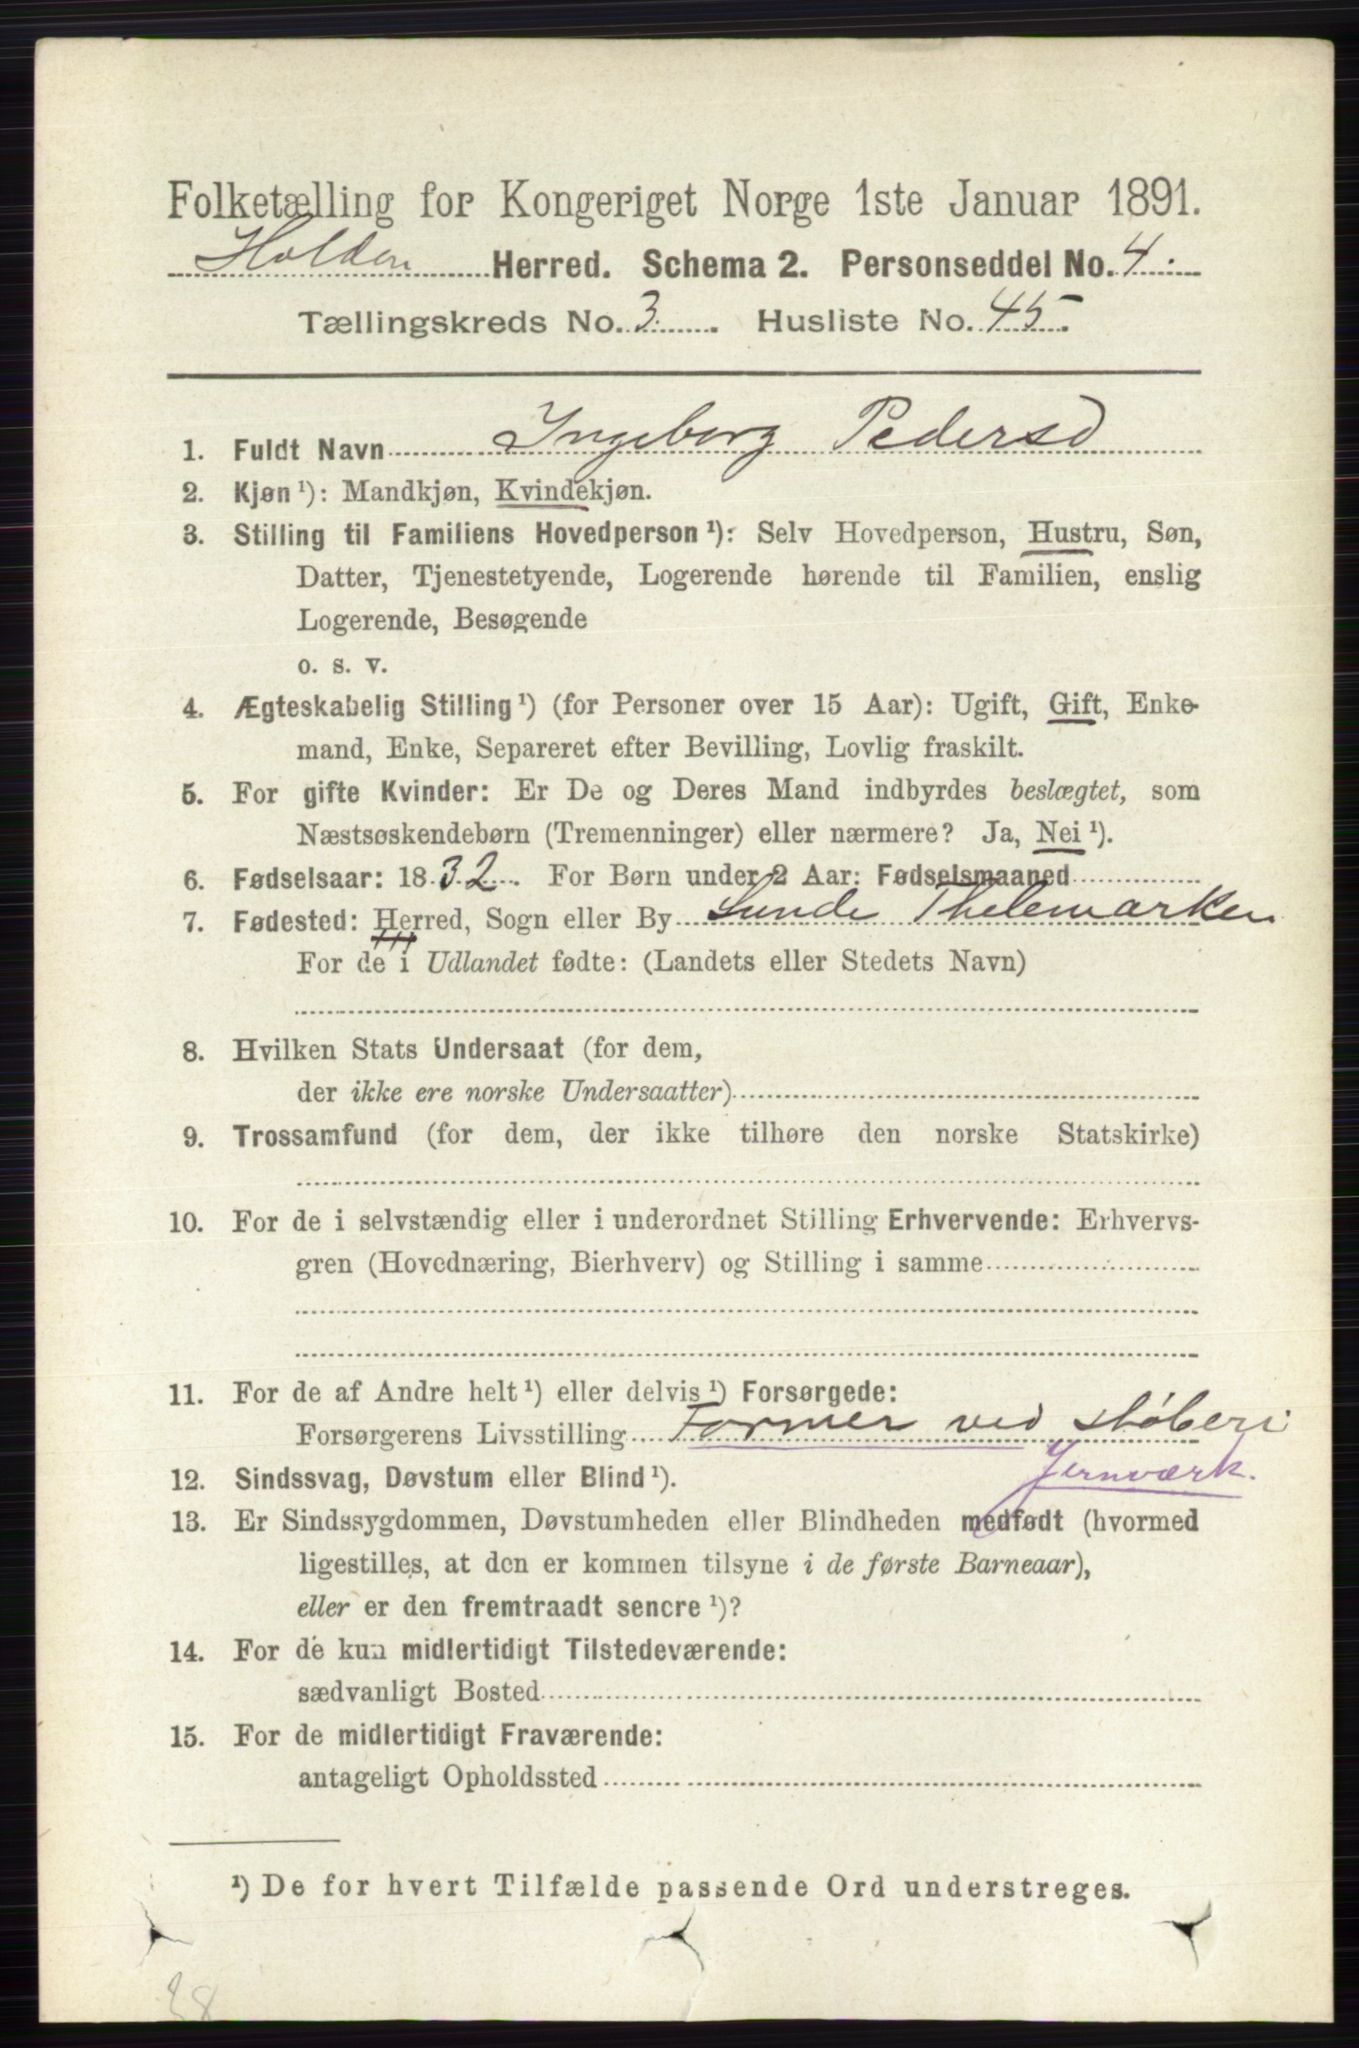 Folketælling for Kongeriget Norge 1ste Januar 1891.
Holden Herred. Schema 2. Personseddel No. 4.
Tællingskreds No. 3. Husliste No. 45.
1. Fuldt Navn Ingeborg Pedersd
2. Kjøn ¹): Mandkjøn, Kvindekjøn.
3. Stilling til Familiens Hovedperson ¹): Selv Hovedperson, Hustru, Søn,
Datter, Tjenestetyende, Logerende hørende til Familien, enslig
Logerende, Besøgende
o. s. v.
4. Ægteskabelig Stilling ¹) (for Personer over 15 Aar): Ugift, Gift, Enke-
mand, Enke, Separeret efter Bevilling, Lovlig fraskilt.
5. For gifte Kvinder: Er De og Deres Mand indbyrdes beslægtet, som
Næstsøskendebørn (Tremenninger) eller nærmere? Ja, Nei ¹).
6. Fødselsaar: 1832. For Børn under 2 Aar: Fødselsmaaned
7. Fødested: Herred, Sogn eller By Lunde Thelemarken
For de i Udlandet fødte: (Landets eller Stedets Navn)
8. Hvilken Stats Undersaat (for dem,
der ikke ere norske Undersaatter)
9. Trossamfund (for dem, der ikke tilhøre den norske Statskirke)
10. For de i selvstændig eller i underordnet Stilling Erhvervende: Erhvervs-
gren (Hovednæring, Bierhverv) og Stilling i samme
11. For de af Andre helt ¹) eller delvis ¹) Forsørgede:
Forsørgerens Livsstilling Former ved støberi
Jernværk.
12. Sindssvag, Døvstum eller Blind ¹).
13. Er Sindssygdommen, Døvstumheden eller Blindheden medfødt (hvormed
ligestilles, at den er kommen tilsyne i de første Barneaar),
eller er den fremtraadt senere ¹)?
14. For de kun midlertidigt Tilstedeværende:
sædvanligt Bosted
15. For de midlertidigt Fraværende:
antageligt Opholdssted
¹) De for hvert Tilfælde passende Ord understreges.
38